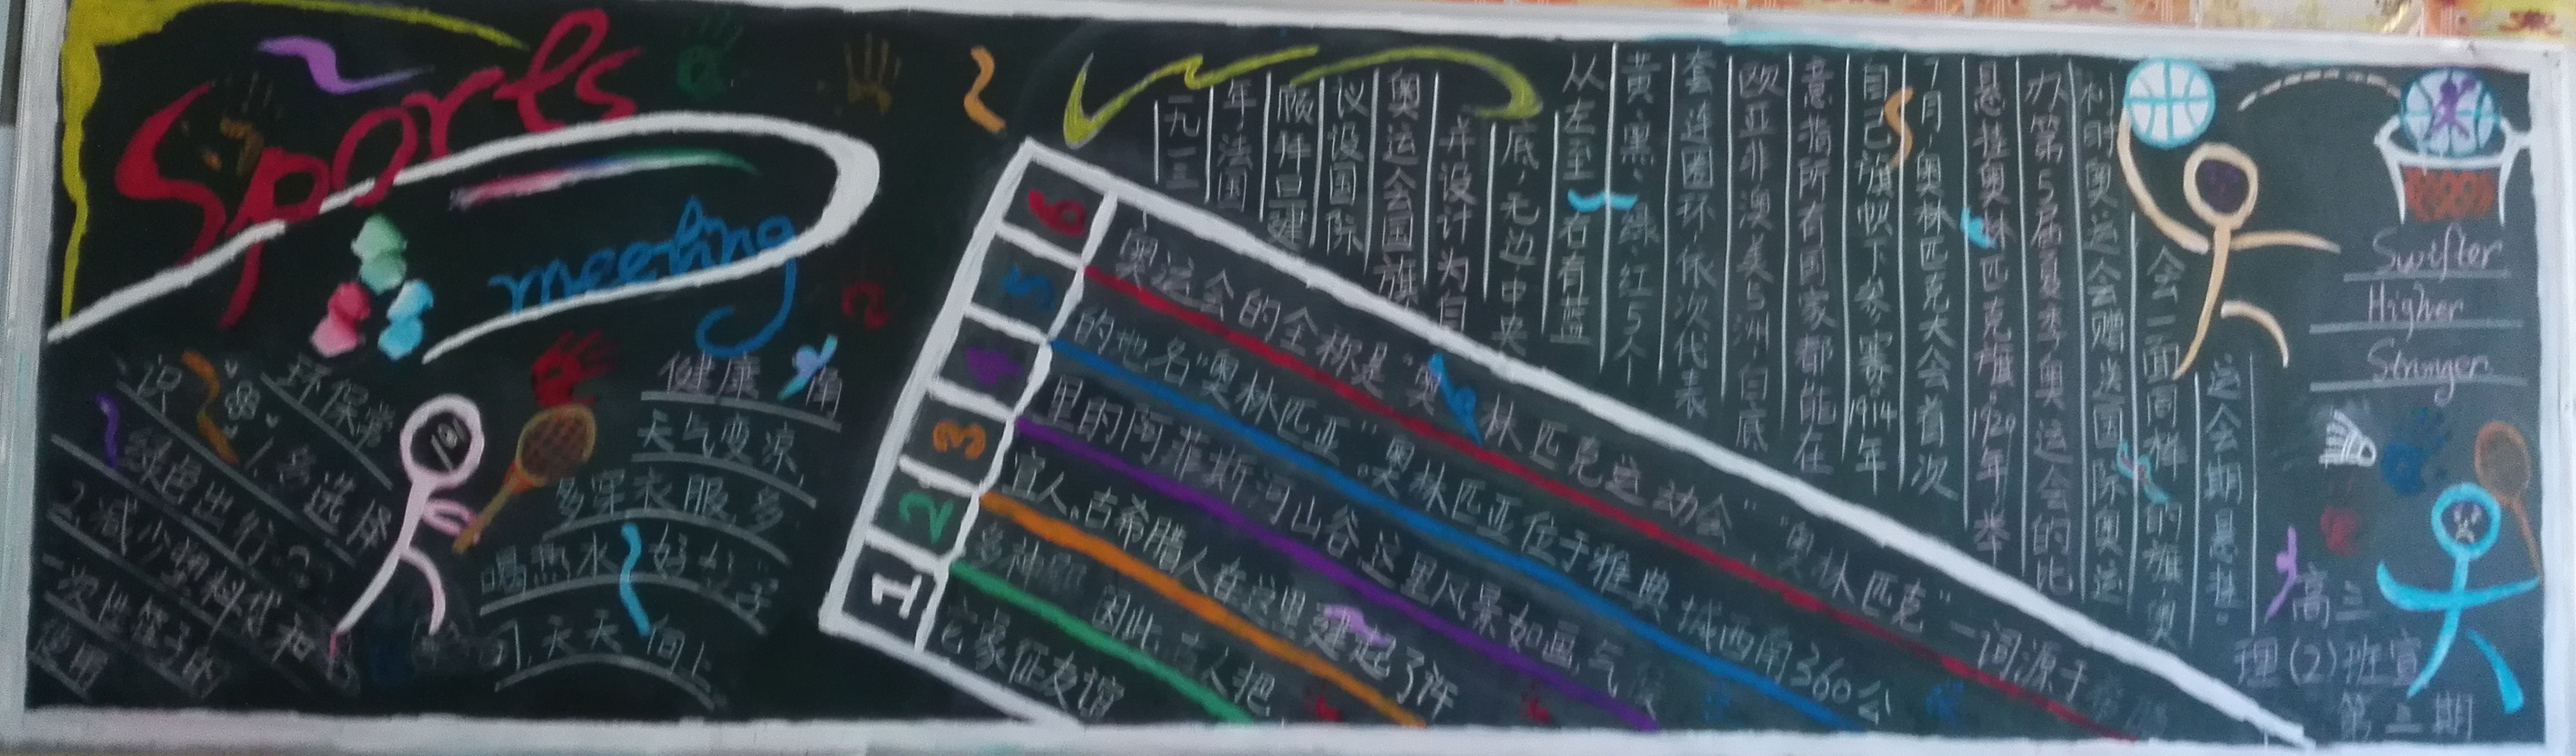 Sports
meeting
环保常
识
1.多选择
绿色出行。
2.减少塑料袋和
一次性筷子的
使用
健康 角
天气变凉,
多穿衣服,多
喝热水 好好学
习,天天 向上
6
5
4
3
2
1
奥运会的全称是"奥 林匹克运动会""奥林匹克"一词源于希腊
的地名"奥林匹亚"奥林匹亚位于雅典 城西南360公
里的阿菲斯河山谷这里风景如画,气候
宜人。古希腊人在这里建起了许
多种 因此 人把
它象征友谊
一九一三
年,法国
顾拜旦建
议设国际
奥运会国旗
并设计为白
底,无边中央
从左至 右首蓝
黄、黑、绿、红5个
套连圆环依次代表
欧亚非澳美5洲,白底
意指所有国家都能在
自己旗帜下参赛。1914年
7月,奥林匹克大会首次
悬挂奥林匹克旗。1920年举
办第5届夏季奥运会的比
利时奥运会赠送国际奥运
会一面同样的旗,奥
运会期悬挂。
Swifter
Higher
Stronger
高三
理(2)班宣
第二期